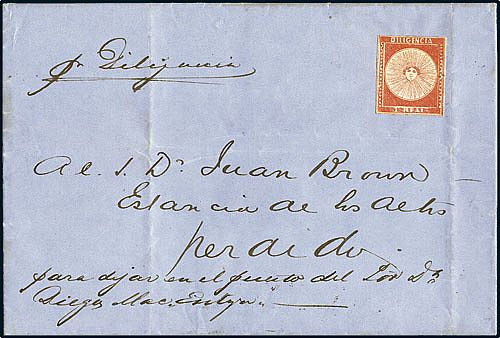 pr Diligencia
DILIGENCIA
1 REAL
Al S. Dn Juan Brown
Estancia de los Altos
perdido.
para dejar en el puesto del Sor Dn
Diego Mac